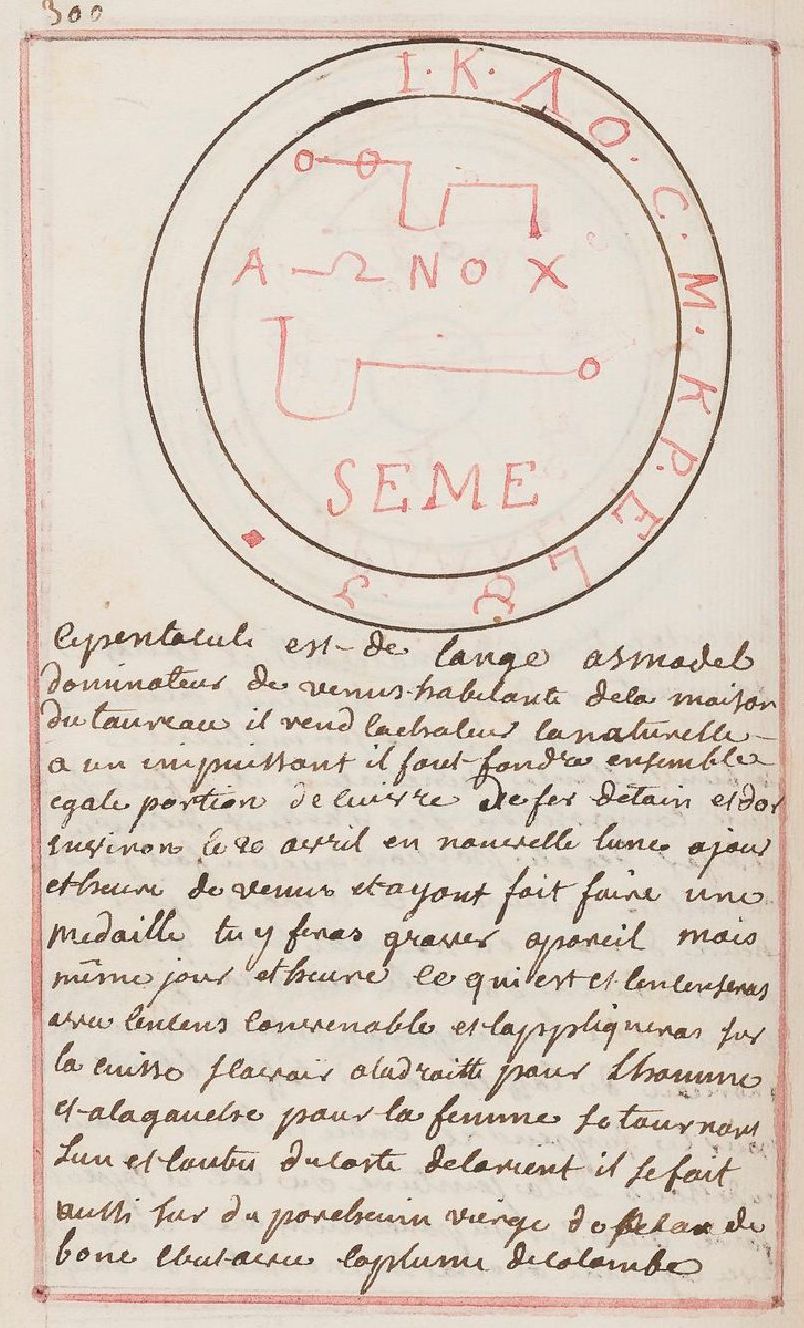 300
I · K · Λ O · C · M · K P E L
A Ω N O X
SEME
ce pentacule est de lange asmodel
dominateur de venus habitante de la maison
du taureau il rend la chaleur la naturelle
a un impuissant il faut fondre ensemble
egale portion de cuivre de fer detain et dor
environ le 20 avril en nouvelle lune a jour
et heure de venus et ayant fait faire une
medaille tu y feras graver apareil mois
même jour et heure ce qui est et lencenseras
avec lencens convenable et lappliqueras sur
la cuisse scavoir a la droitte pour lhomme
et a la gauche pour la femme se tournant
lun et lautre du coste de lorient il se fait
aussi sur du parchemin vierge de de
bouc avec la plume de colombe